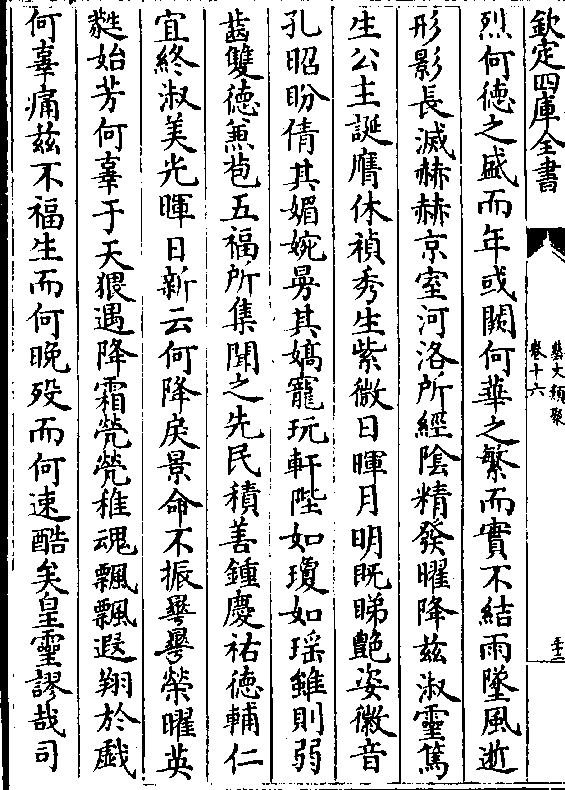 欽定四庫全書
藝文類聚
卷十六
三十二
烈何德之盛而年或闕何華之繁而實不結雨墜風逝
形影長滅赫赫京室河洛所經陰精發曜降兹淑靈篤
生公主誕膺休禎秀生紫微日暉月明既睇艷姿徽音
孔昭盼倩其媚婉㝃其嬌寵玩軒陛如瓊如瑶雖則弱
齒雙徳兼苞五福所集聞之先民積善鍾慶祐徳輔仁
宜終淑美光暉日新云何降戾景命不振曅曅榮曜英
蕤始芳何辜于天猥遇降霜煢煢稚魂飄飄遐翔於戯
何辜痛兹不福生而何晚殁而何速酷矣皇靈謬哉司